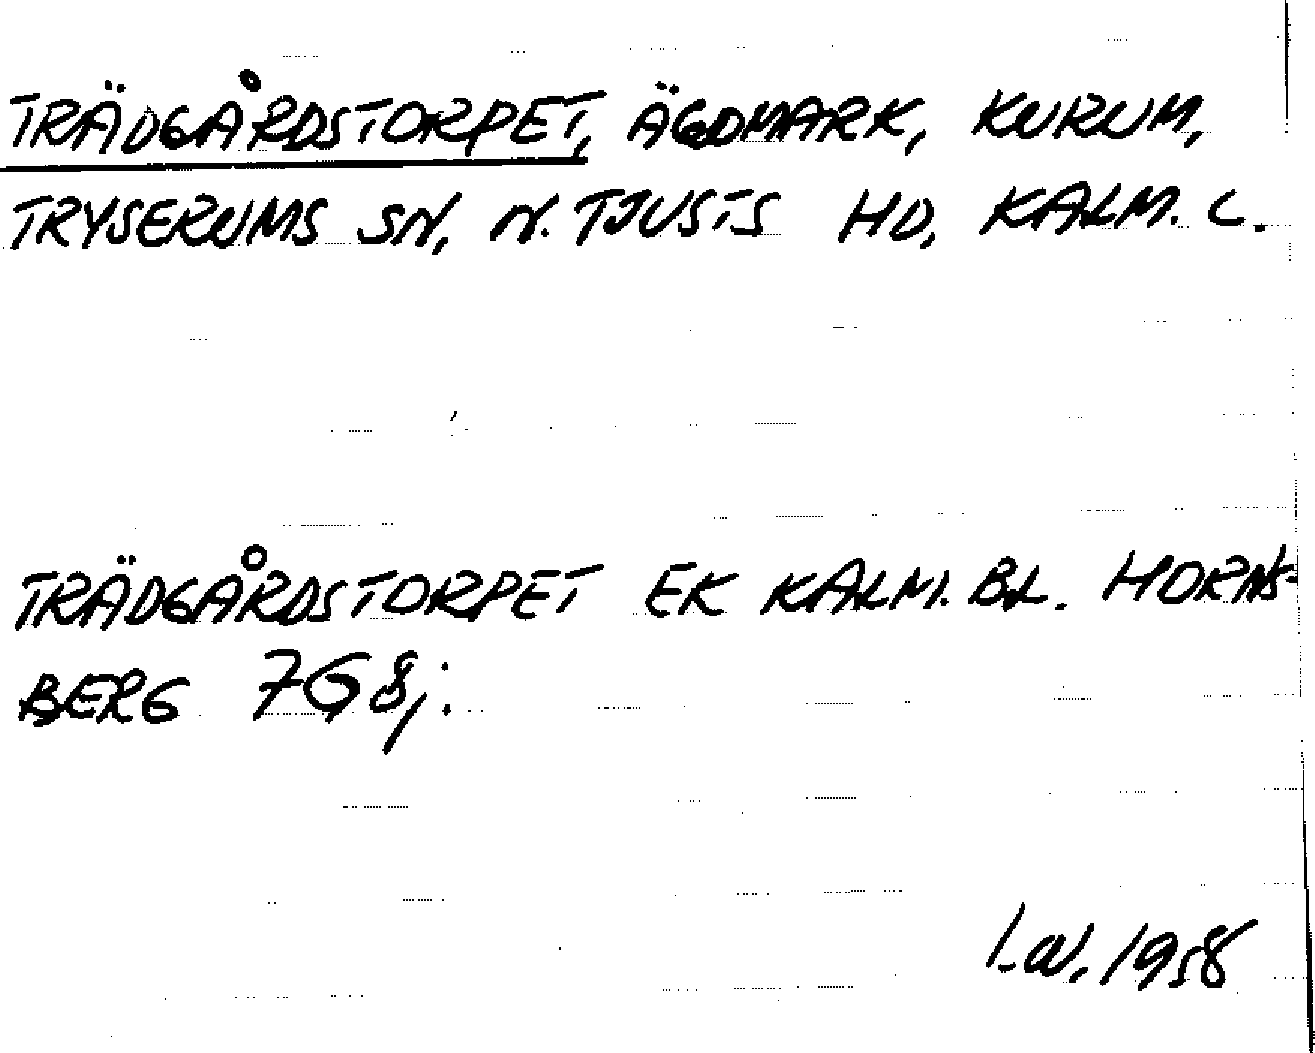 TRÄDGÅRDSTORPET, ÄGDMARK, KURUM,
TRYSERUMS SN, N. TJUSTS HD, KALM. L.
TRÄDGÅRDSTORPET EK KALM. BL. HORNS-
BERG 7G8j.
1958